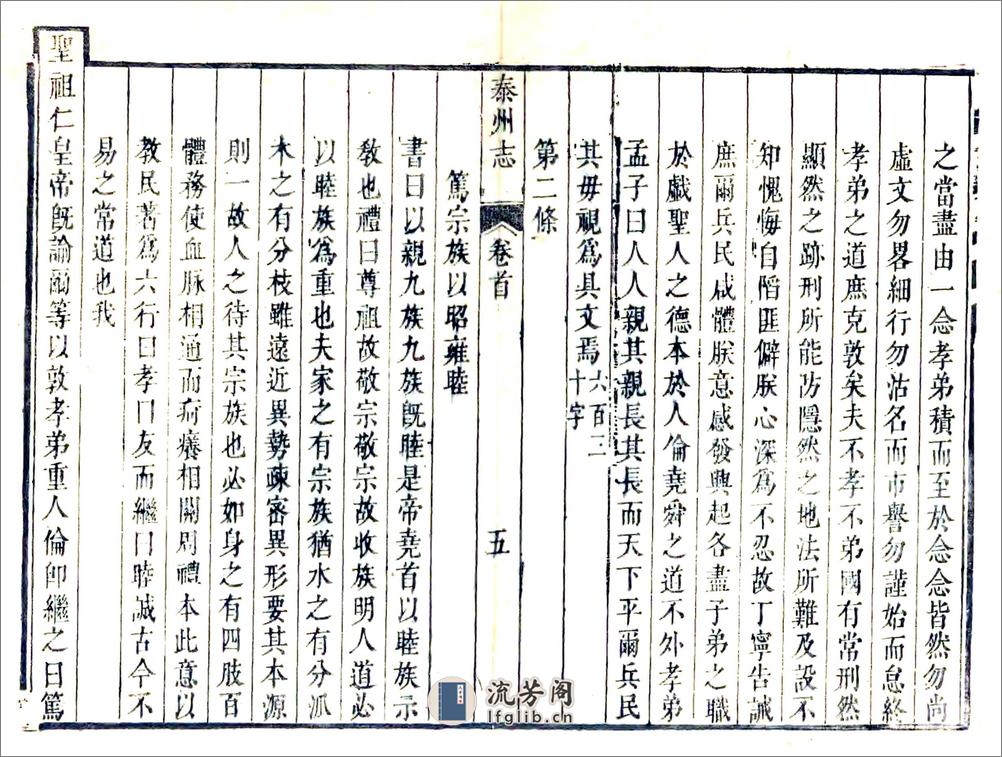 之當盡由一念孝弟積而至於念念皆然勿尚
虛文勿畧細行勿沽名而市譽勿謹始而怠終
孝弟之道庶克敦矣夫不孝不弟國有常刑然
顯然之跡刑所能防隱然之地法所難及設不
知愧悔自䧟匪僻朕心深為不忍故丁寧告誡
庶爾兵民咸體朕意感發興起各盡子弟之職
於戲聖人之德本於人倫堯舜之道不外孝弟
孟子曰人人親其親長其長而天下平爾兵民
其毋視為具文焉六百三十字
第二條
泰州志 卷首 五
篤宗族以昭雍睦
書曰以親九族九族旣睦是帝堯首以睦族示
敎也禮曰尊祖故敬宗敬宗故收族明人道必
以睦族為重也夫家之有宗族猶水之有分派
木之有分枝雖遠近異勢疎密異形要其本源
則一故人之待其宗族也必如身之有四肢百
體務使血脉相通而疴癢相關周禮本此意以
教民著為六行曰孝曰友而繼曰睦誠古今不
易之常道也我
聖祖仁皇帝旣諭爾等以敦孝弟重人倫卽繼之曰篤
流芳阁
lfglib.cn